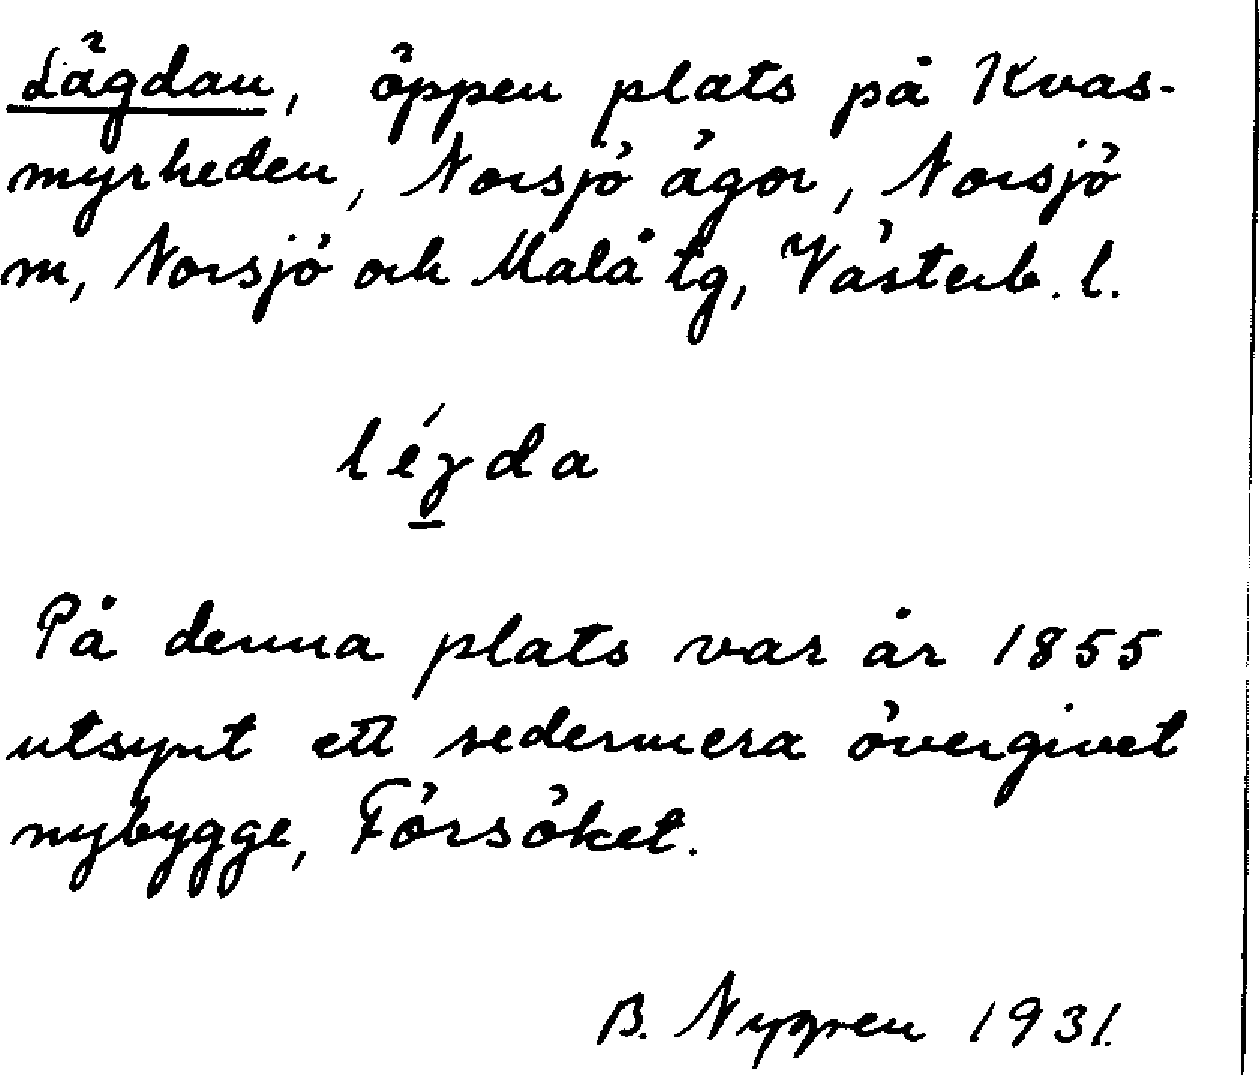 Lägdan, öppen plats på Kvas-
myrheden, Norsjö ägor, Norsjö
m, Norsjö och Malå tg, Västerb. l.
léɡda
På denna plats var år 1855
utsynt ett sedermera övergivet
nybygge, Försöket.
B. Nygren 1931.